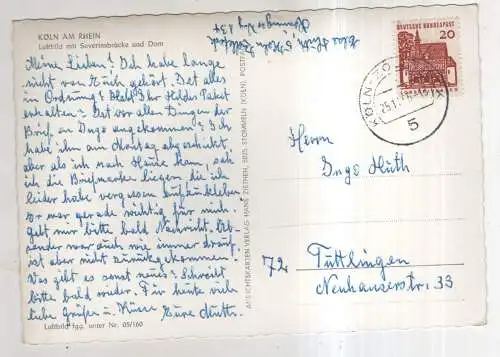 KÖLN AM RHEIN
Luftbild mit Severinsbrücke und Dom
Meine Lieben! Ich habe lange
nicht von Euch gehört. Ist alles
in Ordnung? Habt Ihr Heldes Paket
erhalten? Ist vor allen Dingen der
Brief an Ingo angekommen? Ich
habe ihn am Montag abgeschickt,
aber als ich nach Hause kam, sah
ich die Briefmarke liegen die ich
leider habe vergessen aufzukleben.
Er war gerade wichtig für mich.
Gebt mir bitte bald Nachricht. Ab-
sender war auch wie immer drauf,
ist aber nicht zurückgekommen.
Was gibt es sonst neues? Schreibt
bitte bald wieder. Für heute viele
liebe Grüße u. Küsse Eure Mutti.
Luftbild fgg. unter Nr. 05/160
ANSICHTSKARTEN VERLAG HANS ZIETHEN, 5025 STOMMELN (KÖLN), POSTFACH
Huth, 5 Köln
134
DEUTSCHE BUNDESPOST
20
KÖLN
5
Herrn
Ingo Huth
72 Tuttlingen
Neuhauserstr. 33